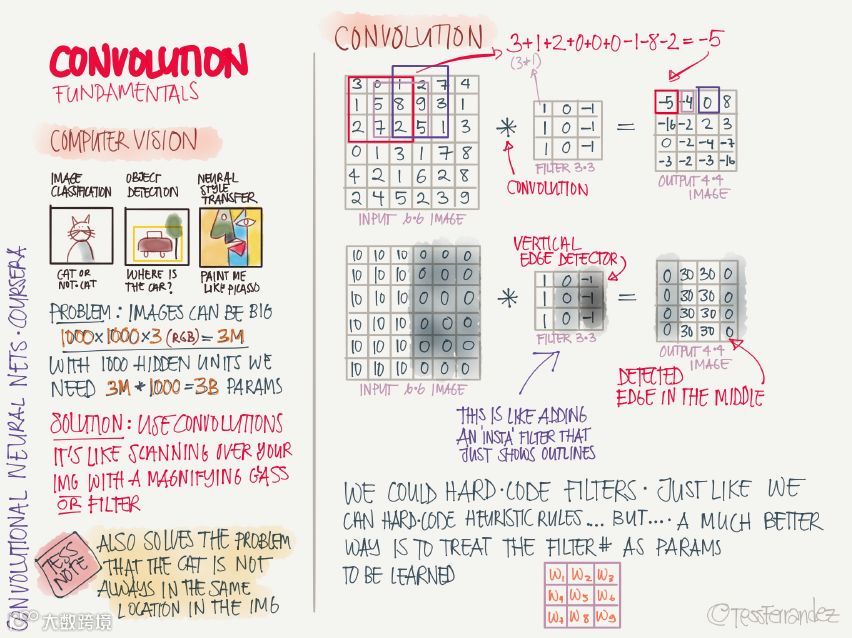 CONVOLUTION
FUNDAMENTALS
COMPUTER VISION
IMAGE
CLASSIFICATION
CAT OR
NOT-CAT
OBJECT
DETECTION
WHERE IS
THE CAR?
NEURAL
STYLE
TRANSFER
PAINT ME
LIKE PICASSO
PROBLEM: IMAGES CAN BE BIG
1000×1000×3 (RGB) = 3M
WITH 1000 HIDDEN UNITS WE
NEED 3M * 1000 = 3B PARAMS
SOLUTION: USE CONVOLUTIONS
IT'S LIKE SCANNING OVER YOUR
IMG WITH A MAGNIFYING GASS
OR FILTER
TESS NOTE
ALSO SOLVES THE PROBLEM
THAT THE CAT IS NOT
ALWAYS IN THE SAME
LOCATION IN THE IMG
CONVOLUTIONAL NEURAL NETS · COURSERA
CONVOLUTION
3+1+2+0+0+0-1-8-2=-5
(3*1)
3 0 1 2 7 4
1 5 8 9 3 1
2 7 2 5 1 3
0 1 3 1 7 8
4 2 1 6 2 8
2 4 5 2 3 9
INPUT 6·6 IMAGE
*
CONVOLUTION
1 0 -1
1 0 -1
1 0 -1
FILTER 3·3
=
-5 -4 0 8
-16 -2 2 3
0 -2 -4 -7
-3 -2 -3 -16
OUTPUT 4·4
IMAGE
10 10 10 0 0 0
10 10 10 0 0 0
10 10 10 0 0 0
10 10 10 0 0 0
10 10 10 0 0 0
10 10 10 0 0 0
INPUT 6·6 IMAGE
*
VERTICAL
EDGE DETECTOR
1 0 -1
1 0 -1
1 0 -1
FILTER 3·3
=
0 30 30 0
0 30 30 0
0 30 30 0
0 30 30 0
OUTPUT 4·4
IMAGE
DETECTED
EDGE IN THE MIDDLE
THIS IS LIKE ADDING
AN 'INSTA' FILTER THAT
JUST SHOWS OUTLINES
WE COULD HARD-CODE FILTERS · JUST LIKE WE
CAN HARD-CODE HEURISTIC RULES... BUT.... A MUCH BETTER
WAY IS TO TREAT THE FILTER# AS PARAMS
TO BE LEARNED
W1 W2 W3
W4 W5 W6
W7 W8 W9
@TessFerrandez
大数跨境